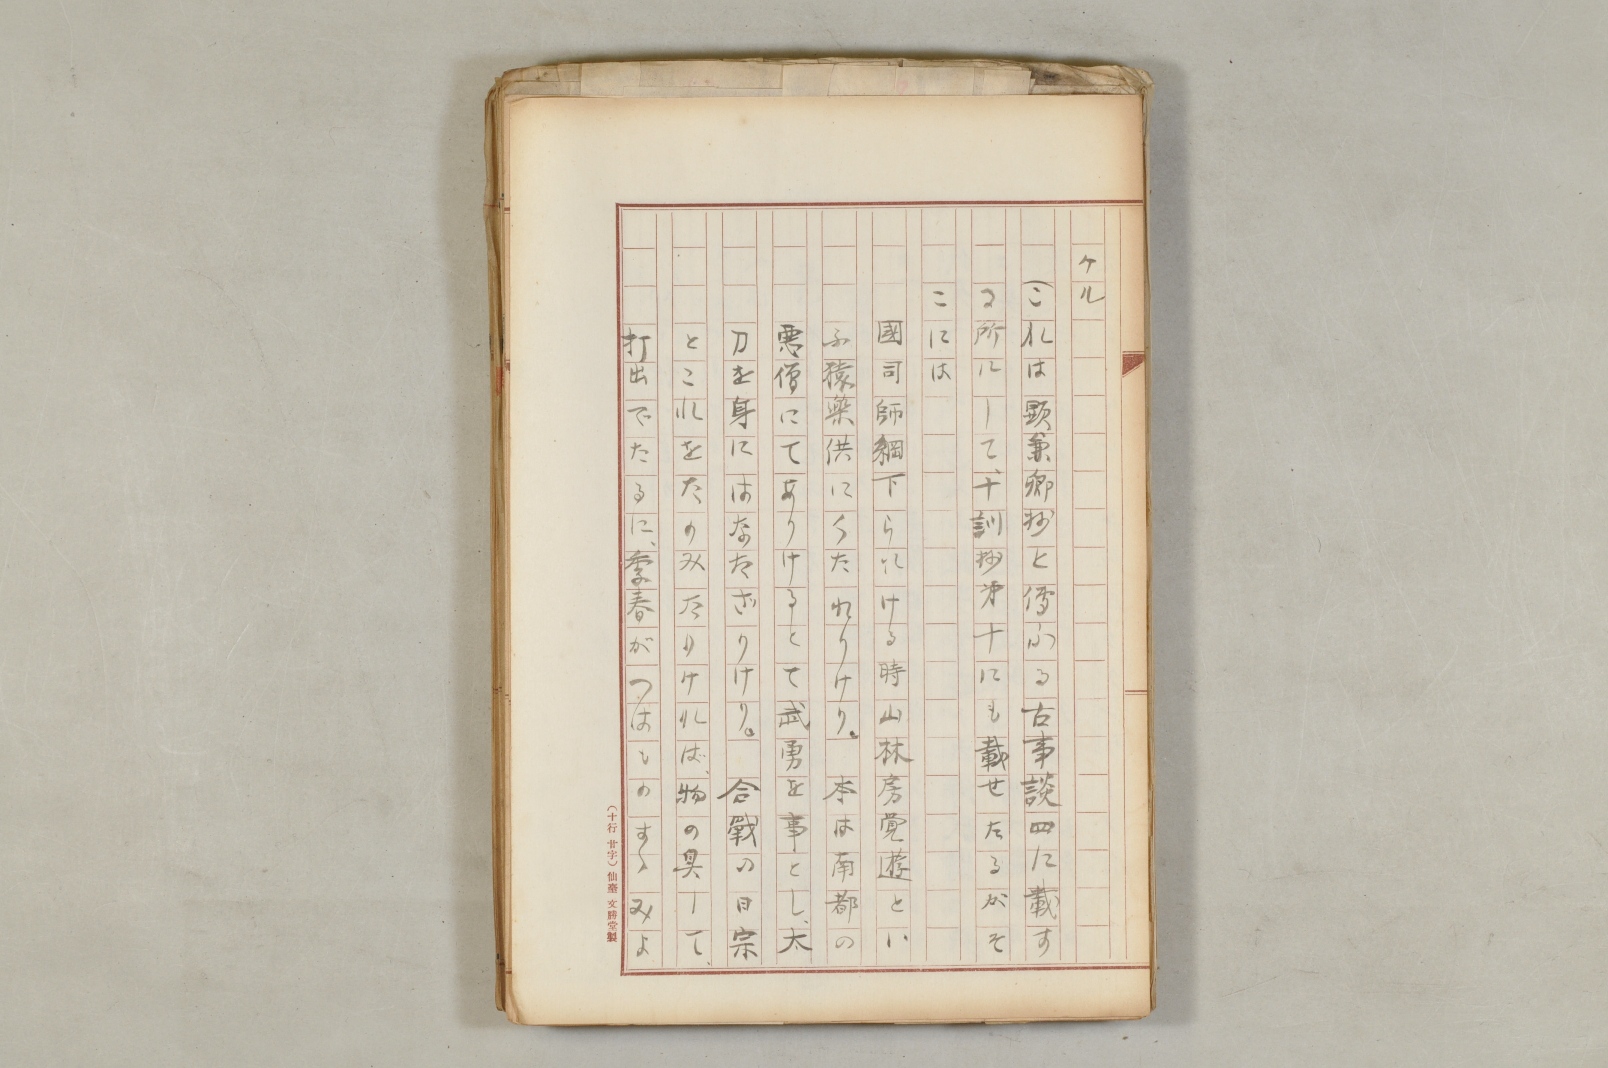 ケル
(これは顕兼卿抄と傳ふる古事談四に載す
る所にして、十訓抄第十にも載せたるがそ
こには
國司師綱下られける時山林房覚遊とい
ふ猿楽供にくたれりけり。本は南都の
悪僧にてありけるとて武勇を事とし、太
刀を身にはなたざりけり。合戰の日宗
とこれをたのみたりければ、物の具して、
打出でたるに、季春がつはものすゝみよ
(十行廿字)仙臺文勝堂製